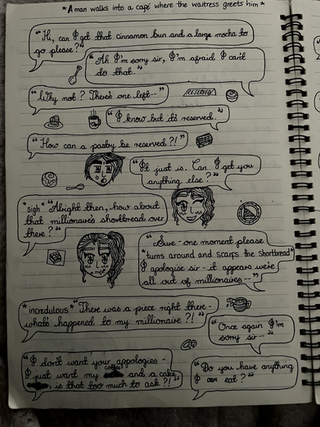 *A man walks into a café where the waitress greets him*
"Hi, can I get that cinnamon bun and a large mocha to
go please?"
"Ah I'm sorry sir, I'm afraid I can't
do that."
"Why not? There's one left--"
RESERVED
"I know but its reserved."
"How can a pastry be reserved?!"
"It just is. Can I get you
anything else?"
*sigh* "Alright then, how about
that millionaire's shortbread over
there?"
"Sure - one moment please
*turns around and scarfs the shortbread*
I apologise sir - it appears we're
all out of millionaires --"
*incredulous* "There was a piece right there -
whats happened to my millionaire?!"
"Once again I'm
sorry sir --"
"I don't want your appologies -
I just want my coffee and a cake,
is that too much to ask?!"
"Do you have anything
I can eat?"